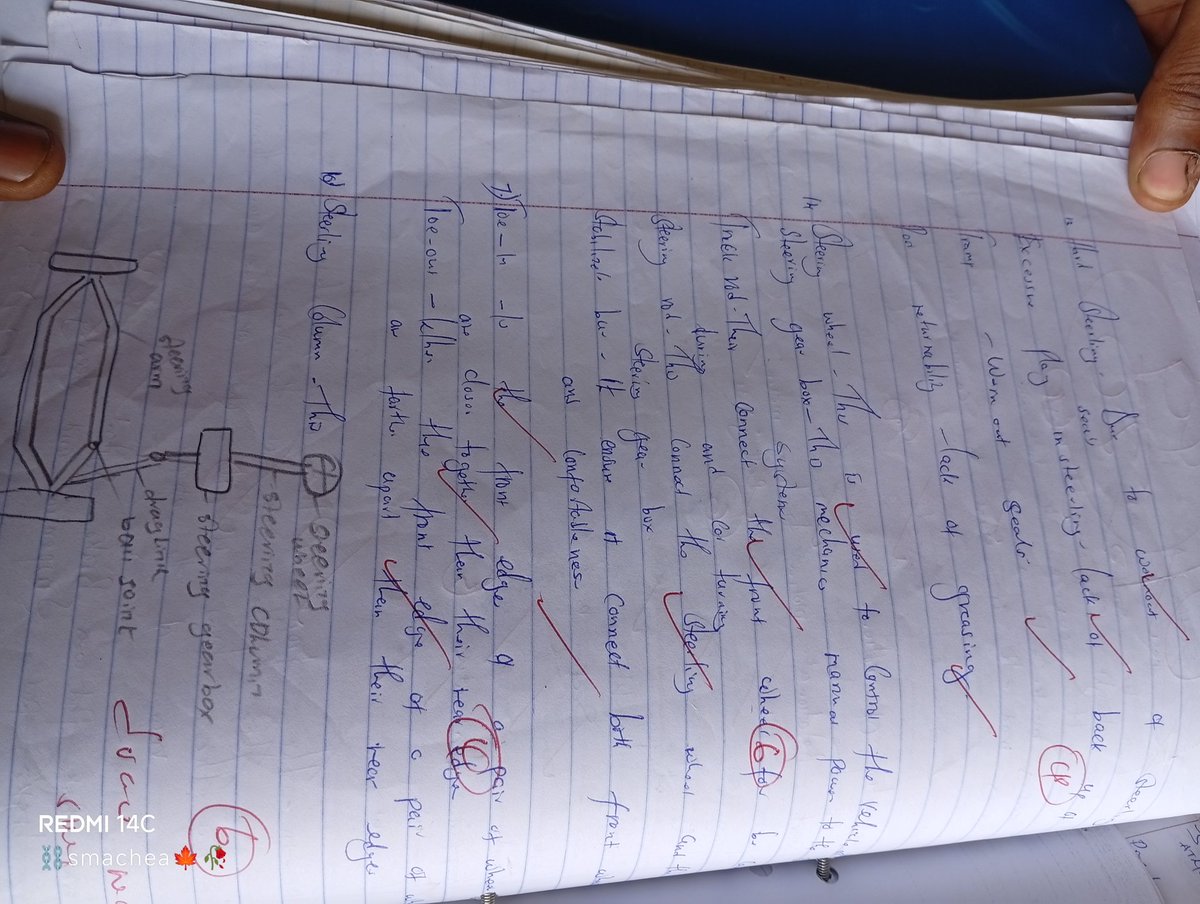 Hard Steering - Due to wornout of
Excessive play in steering - lack of back up
- Worn out seals
Tramp
Poor returnability - lack of greasing
14 Steering wheel - This is used to Control the vehicle
Steering gear box - This mechanics manual power to the
System
Track rod - This Connect the front wheel for
during and Car turning
Steering rod - This Connect the Steering wheel and
Steering gear box
Stabilizer bar - It ensure it Connect both front
and Comfortableness
7) Toe-In - Is the front edge of a pair of wheel
are closer together than their rear edge
Toe-out - When the front edge of a pair of
are farther apart than their rear edges
Steering Column - This
Steering wheel
steering column
steering gearbox
steering arm
draglink
ball joint
6
REDMI 14C
smachea